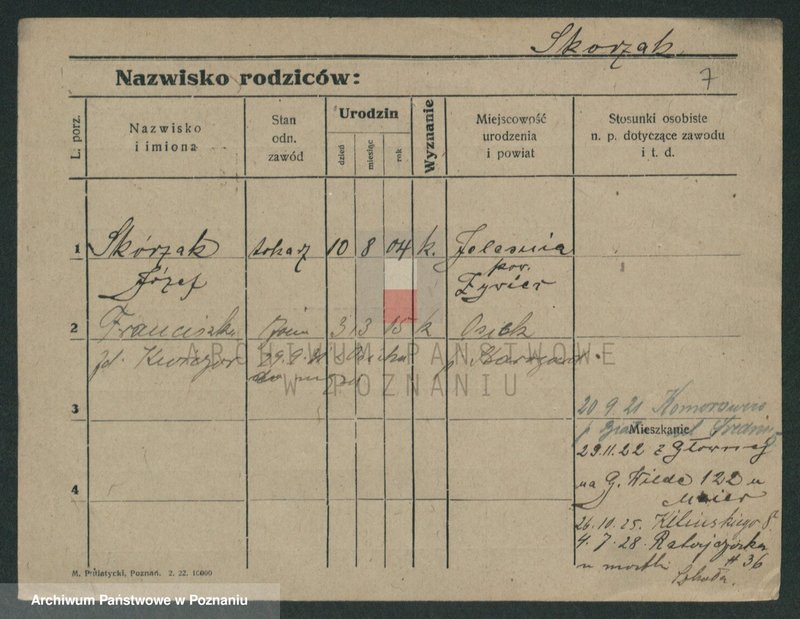 Skorzak
7
Nazwisko rodziców:
L. porz.
Nazwisko
i imiona
Stan
odn.
zawód
Urodzin
dzień
miesiąc
rok
Wyznanie
Miejscowość
urodzenia
i powiat
Stosunki osobiste
n. p. dotyczące zawodu
i t. d.
1 Skórzak tokarz 10 8 04 k. Jelesnia
Józef pow.
Żywiec
2 Franciszka żona 3 3 15 k
29.9.
do męża
ARCHIWUM PAŃSTWOWE
W POZNANIU
3
20 9. 21 Komorowice
Mieszkanie
29.11.22 z Głównej
na G. Wilde 122 u
4
26.10.25. Kilińskiego 8
4.7.28. Ratajczaka
# 36
M. Putiatycki, Poznań. 2. 22. 10000
Archiwum Państwowe w Poznaniu